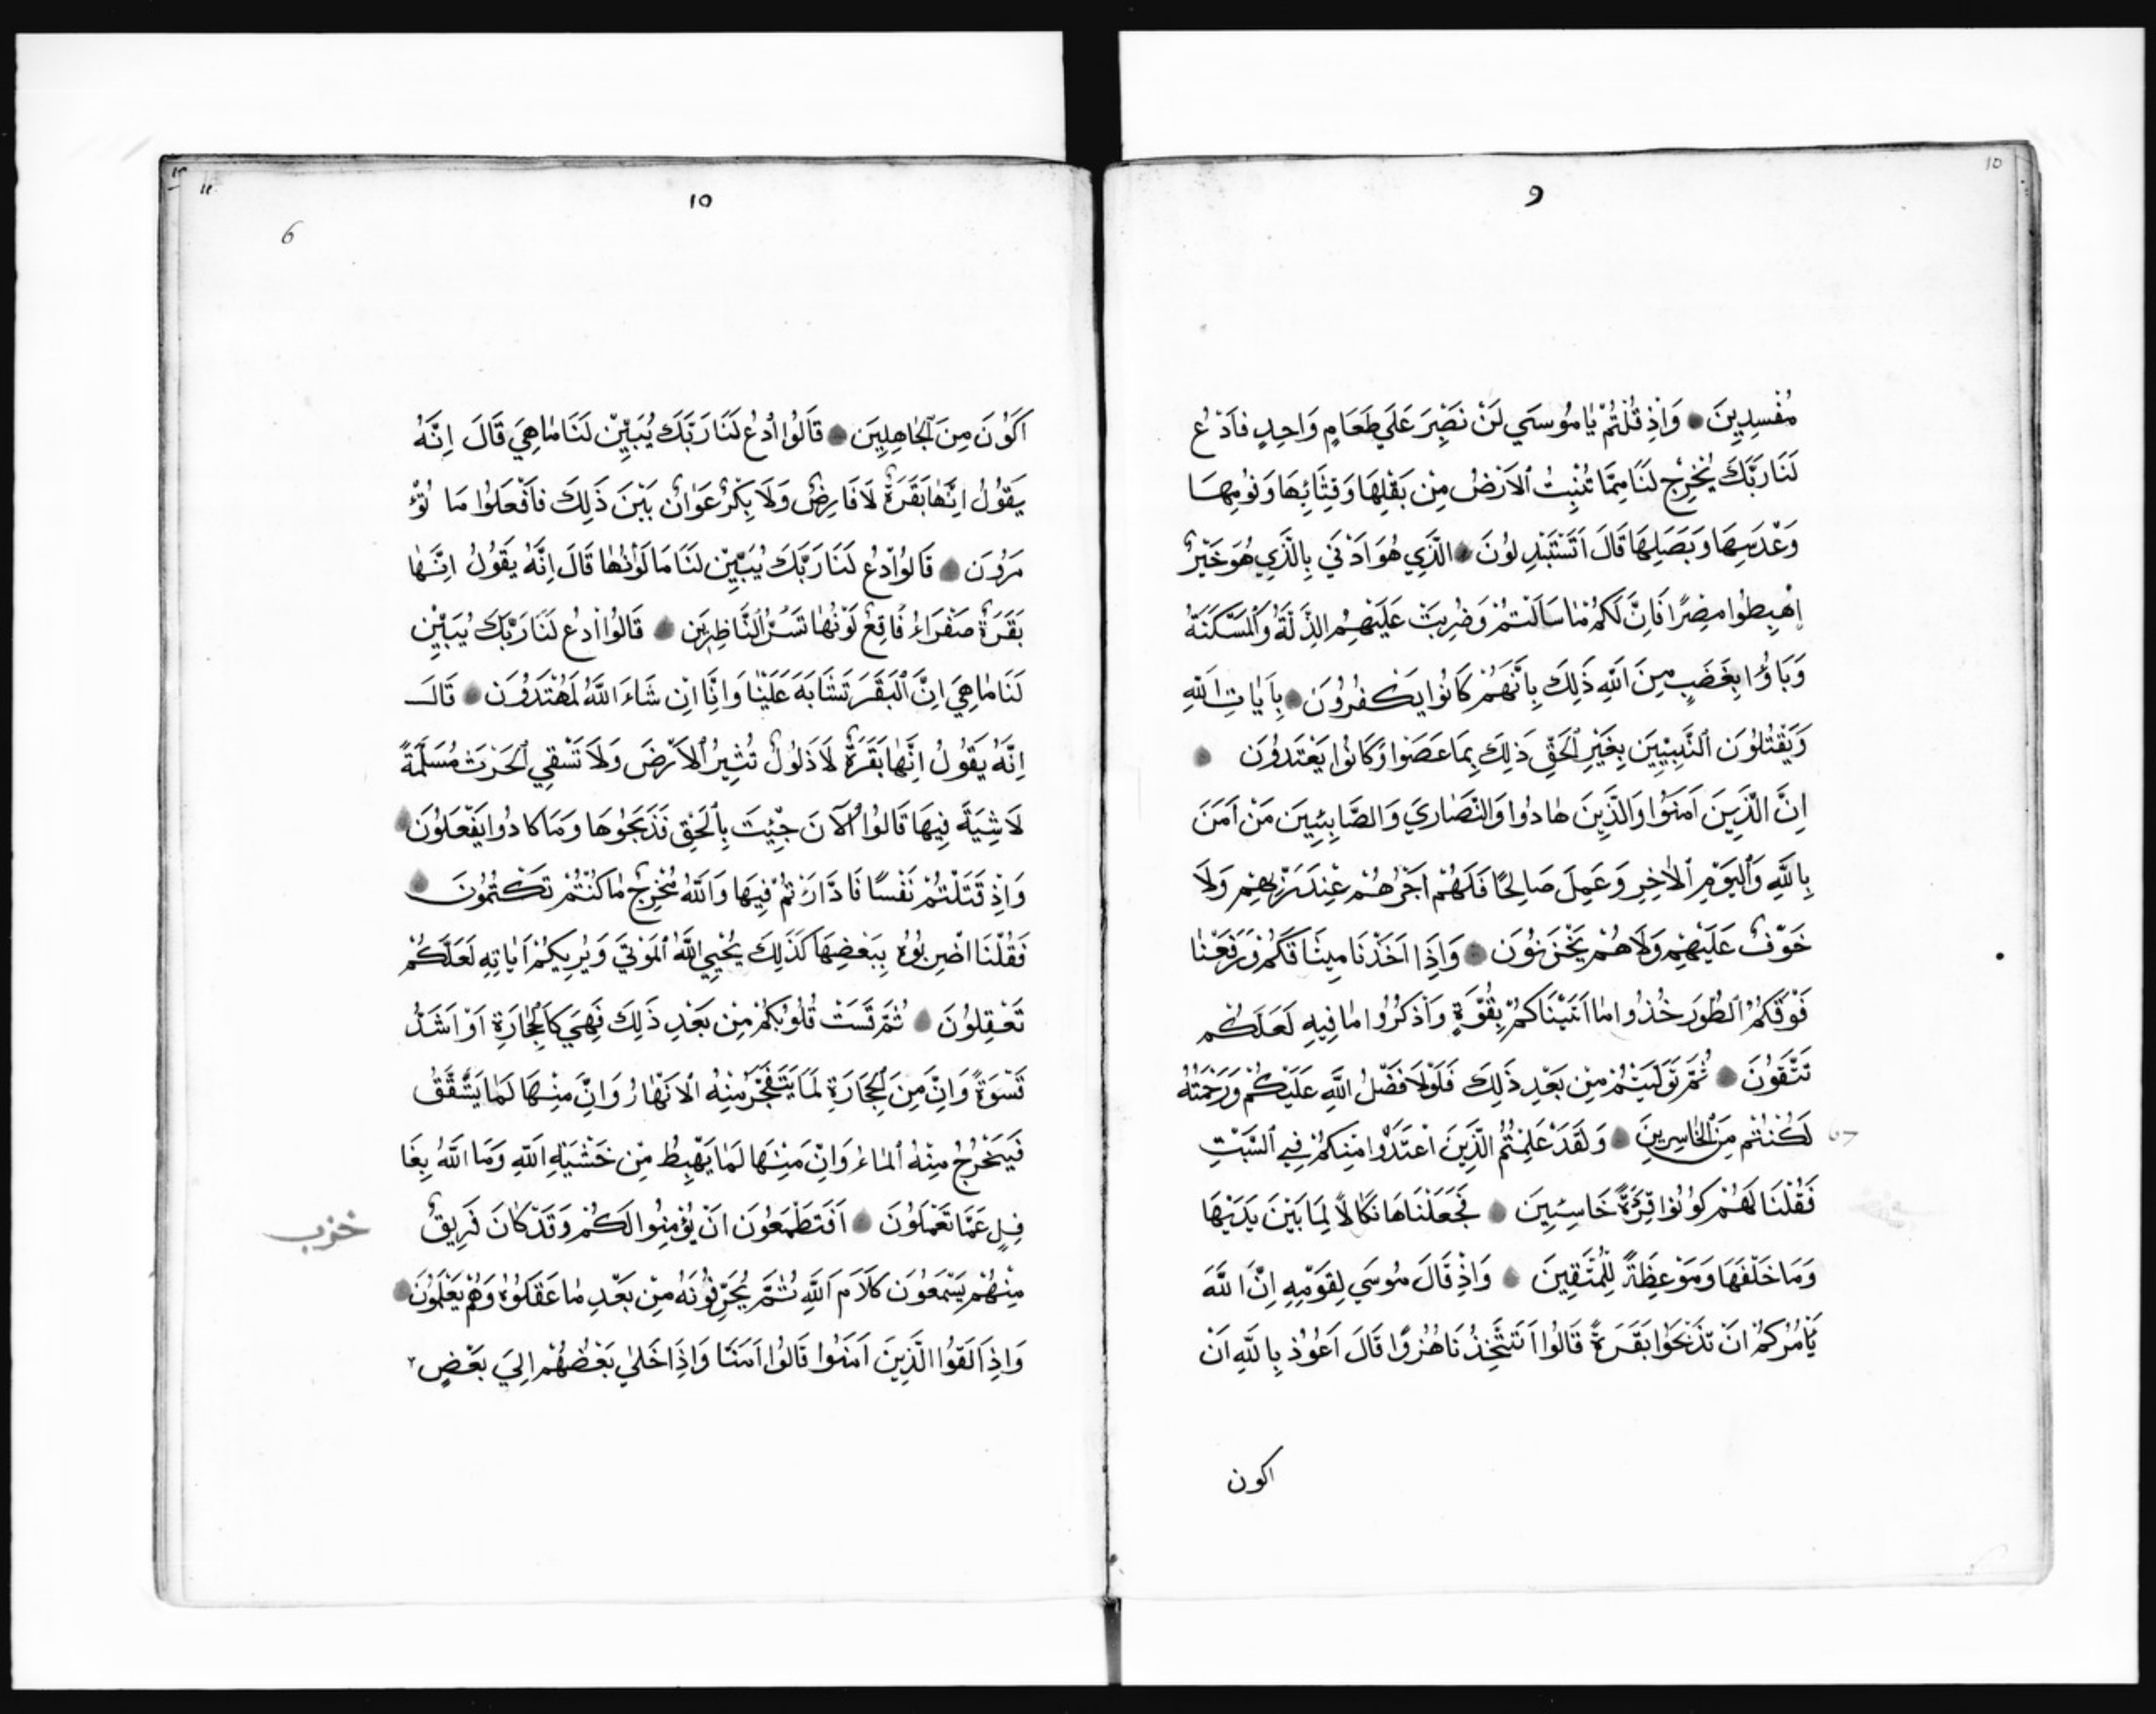 10
9
مُفْسِدِينَ وَاِذْ قُلْتُمْ يَا مُوسَي لَنْ نَصْبِرَ عَلَي طَعَامٍ وَاحِدٍ فَادْعُ
لَنَا رَبَّكَ يُخْرِجْ لَنَا مِمَّا تُنْبِتُ الْاَرْضُ مِنْ بَقْلِهَا وَقِثَّائِهَا وَفُومِهَا
وَعَدَسِهَا وَبَصَلِهَا قَالَ اَتَسْتَبْدِلُونَ الَّذِي هُوَ اَدْنَي بِالَّذِي هُوَ خَيْرٌ
اِهْبِطُوا مِصْرًا فَاِنَّ لَكُمْ مَا سَاَلْتُمْ وَضُرِبَتْ عَلَيْهِمُ الذِّلَّةُ وَالْمَسْكَنَةُ
وَبَاؤُا بِغَضَبٍ مِنَ اللَّهِ ذَلِكَ بِاَنَّهُمْ كَانُوا يَكْفُرُونَ بِاَيَاتِ اللَّهِ
وَيَقْتُلُونَ النَّبِيِّينَ بِغَيْرِ الْحَقِّ ذَلِكَ بِمَا عَصَوْا وَكَانُوا يَعْتَدُونَ
اِنَّ الَّذِينَ اَمَنُوا وَالَّذِينَ هَادُوا وَالنَّصَارَي وَالصَّابِئِينَ مَنْ اَمَنَ
بِاللَّهِ وَالْيَوْمِ الْاٰخِرِ وَعَمِلَ صَالِحًا فَلَهُمْ اَجْرُهُمْ عِنْدَ رَبِّهِمْ وَلَا
خَوْفٌ عَلَيْهِمْ وَلَا هُمْ يَحْزَنُونَ وَاِذَا اَخَذْنَا مِيثَاقَكُمْ وَرَفَعْنَا
فَوْقَكُمُ الطُّورَ خُذُوا مَا اَتَيْنَاكُمْ بِقُوَّةٍ وَاذْكُرُوا مَا فِيهِ لَعَلَّكُمْ
تَتَّقُونَ ثُمَّ تَوَلَّيْتُمْ مِنْ بَعْدِ ذَلِكَ فَلَوْلَا فَضْلُ اللَّهِ عَلَيْكُمْ وَرَحْمَتُهُ
لَكُنْتُمْ مِنَ الْخَاسِرِينَ وَلَقَدْ عَلِمْتُمُ الَّذِينَ اعْتَدَوْا مِنْكُمْ فِي السَّبْتِ
فَقُلْنَا لَهُمْ كُونُوا قِرَدَةً خَاسِئِينَ فَجَعَلْنَاهَا نَكَالًا لِمَا بَيْنَ يَدَيْهَا
وَمَا خَلْفَهَا وَمَوْعِظَةً لِلْمُتَّقِينَ وَاِذْ قَالَ مُوسَي لِقَوْمِهِ اِنَّ اللَّهَ
يَاْمُرُكُمْ اَنْ تَذْبَحُوا بَقَرَةً قَالُوا اَتَتَّخِذُنَا هُزُوًا قَالَ اَعُوذُ بِاللَّهِ اَنْ
اكون
10
6
اَكُونَ مِنَ الْجَاهِلِينَ قَالُوا ادْعُ لَنَا رَبَّكَ يُبَيِّنْ لَنَا مَا هِيَ قَالَ اِنَّهُ
يَقُولُ اِنَّهَا بَقَرَةٌ لَا فَارِضٌ وَلَا بِكْرٌ عَوَانٌ بَيْنَ ذَلِكَ فَافْعَلُوا مَا تُؤْ
مَرُونَ قَالُوا ادْعُ لَنَا رَبَّكَ يُبَيِّنْ لَنَا مَا لَوْنُهَا قَالَ اِنَّهُ يَقُولُ اِنَّهَا
بَقَرَةٌ صَفْرَاءُ فَاقِعٌ لَوْنُهَا تَسُرُّ النَّاظِرِينَ قَالُوا ادْعُ لَنَا رَبَّكَ يُبَيِّنْ
لَنَا مَا هِيَ اِنَّ الْبَقَرَ تَشَابَهَ عَلَيْنَا وَاِنَّا اِنْ شَاءَ اللَّهُ لَمُهْتَدُونَ قَالَ
اِنَّهُ يَقُولُ اِنَّهَا بَقَرَةٌ لَا ذَلُولٌ تُثِيرُ الْاَرْضَ وَلَا تَسْقِي الْحَرْثَ مُسَلَّمَةً
لَا شِيَةَ فِيهَا قَالُوا الْآنَ جِئْتَ بِالْحَقِّ فَذَبَحُوهَا وَمَا كَادُوا يَفْعَلُونَ
وَاِذْ قَتَلْتُمْ نَفْسًا فَادَّارَئْتُمْ فِيهَا وَاللَّهُ مُخْرِجٌ مَا كُنْتُمْ تَكْتُمُونَ
فَقُلْنَا اضْرِبُوهُ بِبَعْضِهَا كَذَلِكَ يُحْيِي اللَّهُ الْمَوْتَي وَيُرِيكُمْ اَيَاتِهِ لَعَلَّكُمْ
تَعْقِلُونَ ثُمَّ قَسَتْ قُلُوبُكُمْ مِنْ بَعْدِ ذَلِكَ فَهِيَ كَالْحِجَارَةِ اَوْ اَشَدُّ
قَسْوَةً وَاِنَّ مِنَ الْحِجَارَةِ لَمَا يَتَفَجَّرُ مِنْهُ الْاَنْهَارُ وَاِنَّ مِنْهَا لَمَا يَشَّقَّقُ
فَيَخْرُجُ مِنْهُ الْمَاءُ وَاِنَّ مِنْهَا لَمَا يَهْبِطُ مِنْ خَشْيَةِ اللَّهِ وَمَا اللَّهُ بِغَا
فِلٍ عَمَّا تَعْمَلُونَ اَفَتَطْمَعُونَ اَنْ يُؤْمِنُوا لَكُمْ وَقَدْ كَانَ فَرِيقٌ
مِنْهُمْ يَسْمَعُونَ كَلَامَ اللَّهِ ثُمَّ يُحَرِّفُونَهُ مِنْ بَعْدِ مَا عَقَلُوهُ وَهُمْ يَعْلَمُونَ
وَاِذَا لَقُوا الَّذِينَ اَمَنُوا قَالُوا اَمَنَّا وَاِذَا خَلَي بَعْضُهُمْ اِلَي بَعْضٍ
حزب
10